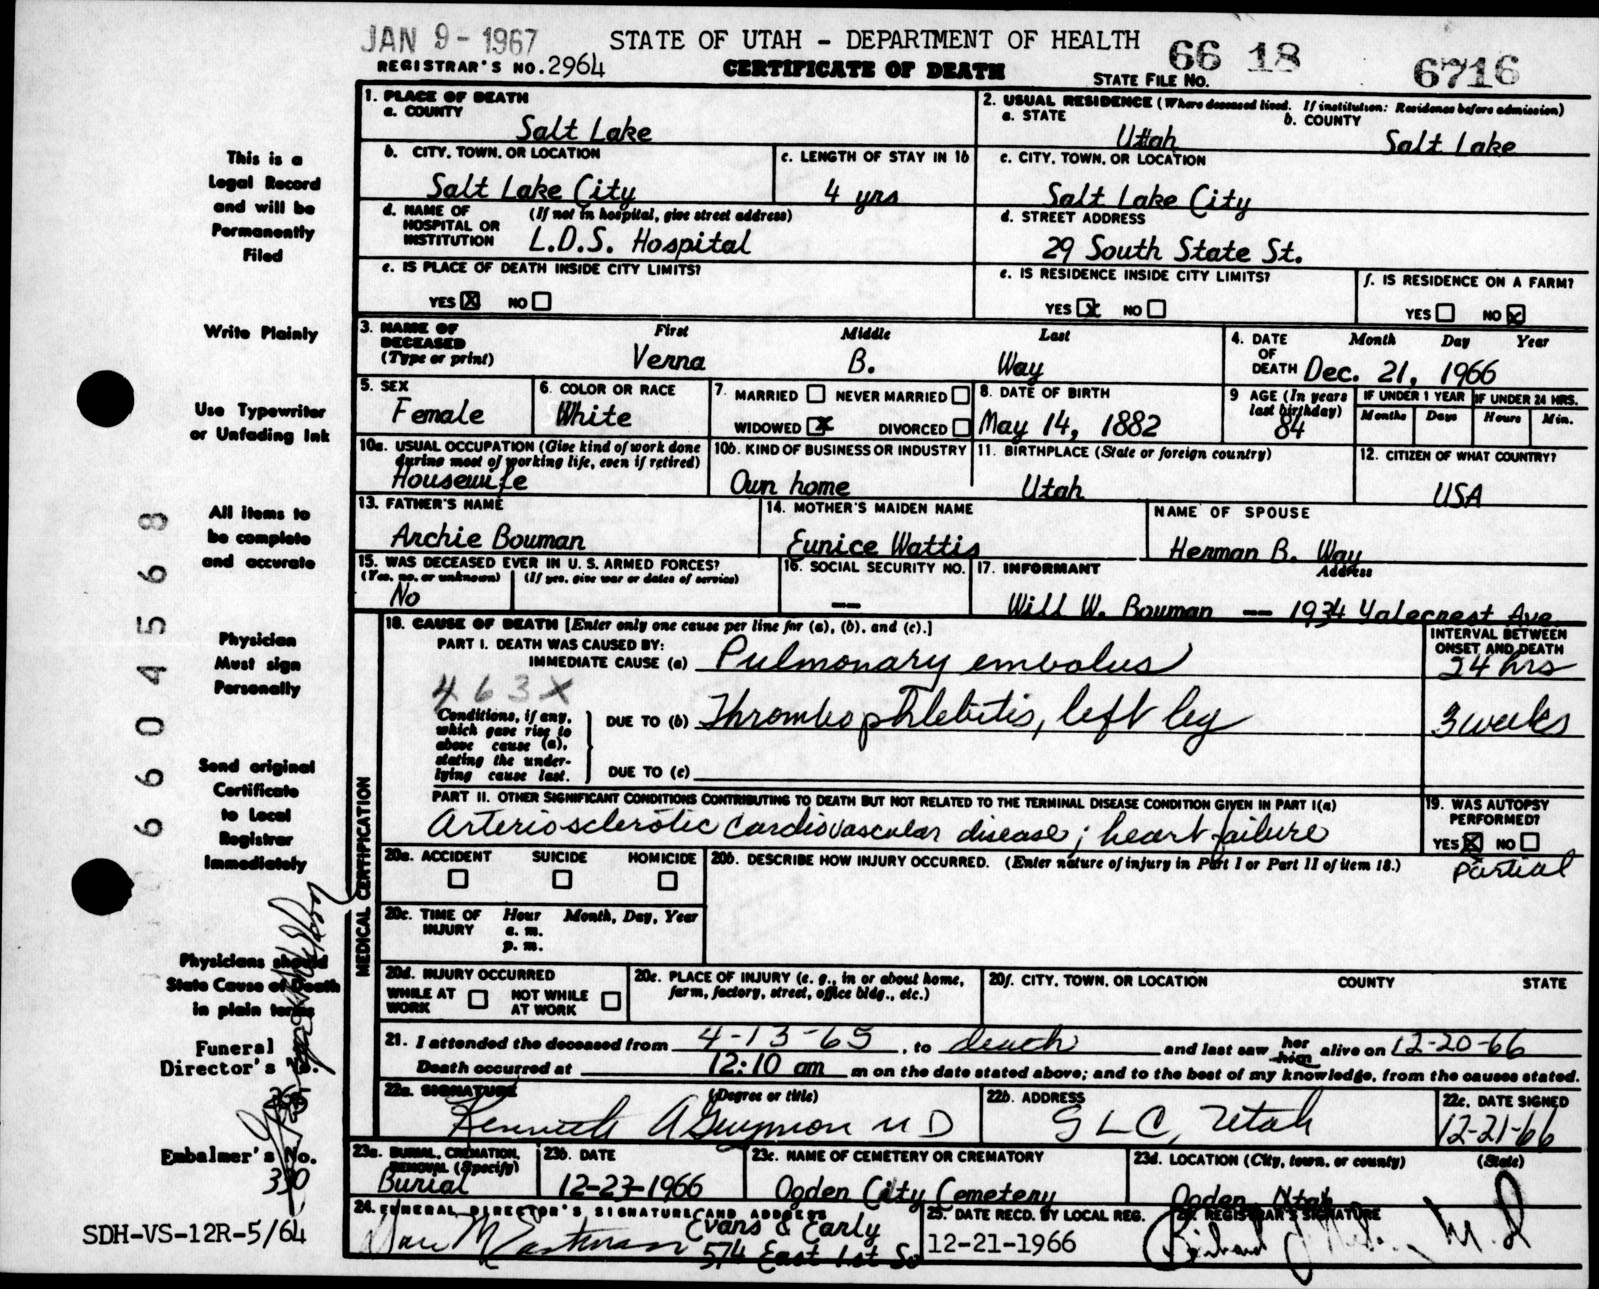 JAN 9 - 1967
STATE OF UTAH - DEPARTMENT OF HEALTH
66 18 6716
REGISTRAR'S NO. 2964
CERTIFICATE OF DEATH
STATE FILE NO.
1. PLACE OF DEATH
a. COUNTY
Salt Lake
2. USUAL RESIDENCE (Where deceased lived. If institution: Residence before admission)
a. STATE
Utah
b. COUNTY
Salt Lake
b. CITY, TOWN, OR LOCATION
Salt Lake City
c. LENGTH OF STAY IN 1b
4 yrs
c. CITY, TOWN, OR LOCATION
Salt Lake City
d. NAME OF HOSPITAL OR INSTITUTION
(If not in hospital, give street address)
L.D.S. Hospital
d. STREET ADDRESS
29 South State St.
e. IS PLACE OF DEATH INSIDE CITY LIMITS?
YES X NO
e. IS RESIDENCE INSIDE CITY LIMITS?
YES X NO
f. IS RESIDENCE ON A FARM?
YES NO X
3. NAME OF DECEASED
(Type or print)
First
Verna
Middle
B.
Last
Way
4. DATE OF DEATH
Month Day Year
Dec. 21, 1966
5. SEX
Female
6. COLOR OR RACE
White
7. MARRIED NEVER MARRIED
WIDOWED X DIVORCED
8. DATE OF BIRTH
May 14, 1882
9 AGE (In years last birthday)
84
IF UNDER 1 YEAR
Months Days
IF UNDER 24 HRS.
Hours Min.
10a. USUAL OCCUPATION (Give kind of work done during most of working life, even if retired)
Housewife
10b. KIND OF BUSINESS OR INDUSTRY
Own home
11. BIRTHPLACE (State or foreign country)
Utah
12. CITIZEN OF WHAT COUNTRY?
USA
13. FATHER'S NAME
Archie Bowman
14. MOTHER'S MAIDEN NAME
Eunice Wattis
NAME OF SPOUSE
Herman B. Way
15. WAS DECEASED EVER IN U. S. ARMED FORCES?
(Yes, no, or unknown) (If yes, give war or dates of service)
No
16. SOCIAL SECURITY NO.
—
17. INFORMANT
Address
Will W. Bowman — 1934 Yalecrest Ave.
MEDICAL CERTIFICATION
18. CAUSE OF DEATH [Enter only one cause per line for (a), (b), and (c).]
INTERVAL BETWEEN ONSET AND DEATH
PART I. DEATH WAS CAUSED BY:
IMMEDIATE CAUSE (a) Pulmonary embolus
24 hrs
463X
Conditions, if any, which gave rise to above cause (a), stating the underlying cause last.
DUE TO (b) Thrombophlebitis, left leg
3 weeks
DUE TO (c)
PART II. OTHER SIGNIFICANT CONDITIONS CONTRIBUTING TO DEATH BUT NOT RELATED TO THE TERMINAL DISEASE CONDITION GIVEN IN PART I(a)
Arteriosclerotic cardiovascular disease; heart failure
19. WAS AUTOPSY PERFORMED?
YES X NO
Partial
20a. ACCIDENT SUICIDE HOMICIDE
20b. DESCRIBE HOW INJURY OCCURRED. (Enter nature of injury in Part I or Part II of item 18.)
20c. TIME OF INJURY
Hour Month, Day, Year
a. m.
p. m.
20d. INJURY OCCURRED
WHILE AT WORK NOT WHILE AT WORK
20e. PLACE OF INJURY (e. g., in or about home, farm, factory, street, office bldg., etc.)
20f. CITY, TOWN, OR LOCATION COUNTY STATE
21. I attended the deceased from 4-13-65, to death and last saw her him alive on 12-20-66
Death occurred at 12:10 am m on the date stated above; and to the best of my knowledge, from the causes stated.
22a. SIGNATURE (Degree or title)
Kenneth A Guymon MD
22b. ADDRESS
SLC, Utah
22c. DATE SIGNED
12-21-66
23a. BURIAL, CREMATION, REMOVAL (Specify)
Burial
23b. DATE
12-23-1966
23c. NAME OF CEMETERY OR CREMATORY
Ogden City Cemetery
23d. LOCATION (City, town, or county) (State)
Ogden, Utah
24. FUNERAL DIRECTOR'S SIGNATURE AND ADDRESS
Evans & Early
574 East 1st So
25. DATE RECD. BY LOCAL REG.
12-21-1966
26. REGISTRAR'S SIGNATURE
M.D
This is a
Legal Record
and will be
Permanently
Filed
Write Plainly
Use Typewriter
or Unfading Ink
All items to
be complete
and accurate
Physician
Must sign
Personally
Send original
Certificate
to Local
Registrar
Immediately
Physicians should
State Cause of Death
in plain terms
Funeral
Director's No.
Embalmer's No.
350
66 04568
SDH-VS-12R-5/64